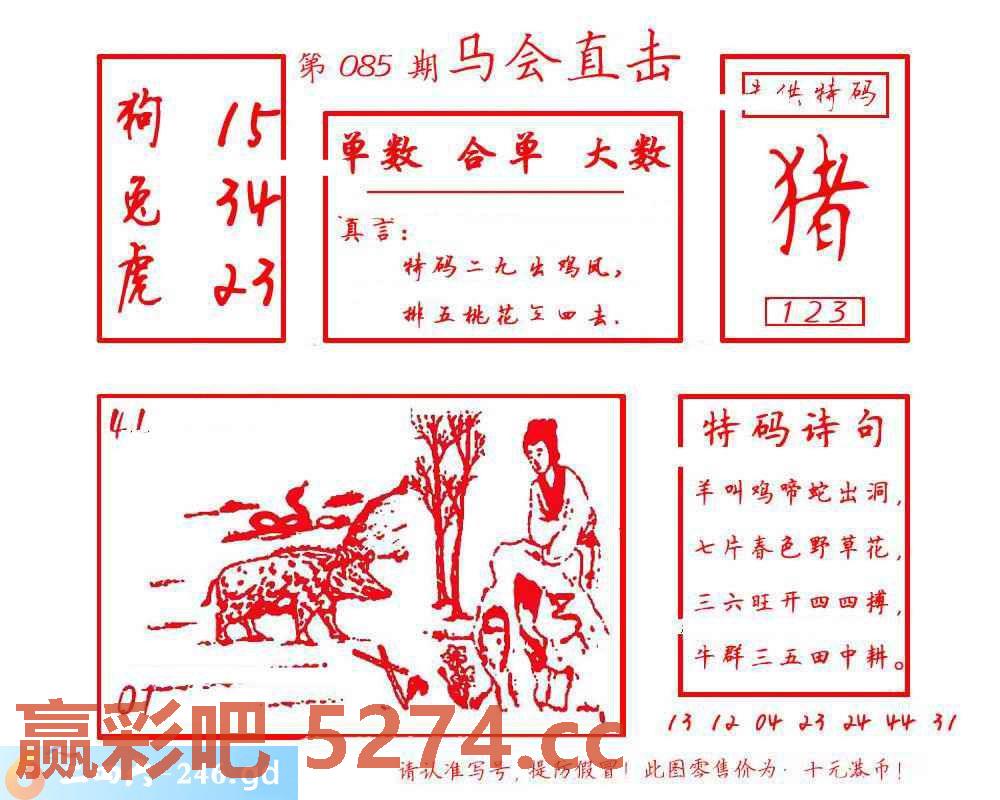 第 085 期 马会直击
狗 15
兔 34
虎 23
单数 合单 大数
真言：
特码二九出鸡凤，
排五桃花三四去．
供特码
猪
123
41
01
特码诗句
羊叫鸡啼蛇出洞，
七片春色野草花，
三六旺开四四搏，
牛群三五田中耕。
13 12 04 23 24 44 31
赢彩吧 5274.cc
-246.gd
请认准写号，提防假冒！此图零售价为：十元港币！